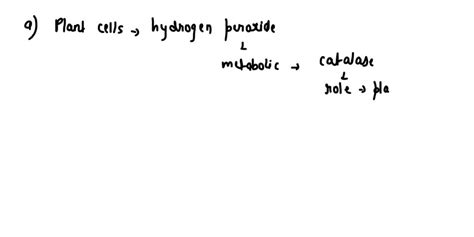 a) Plant cells → hydrogen peroxide
↓
metabolic → catalase
↓
role → pla